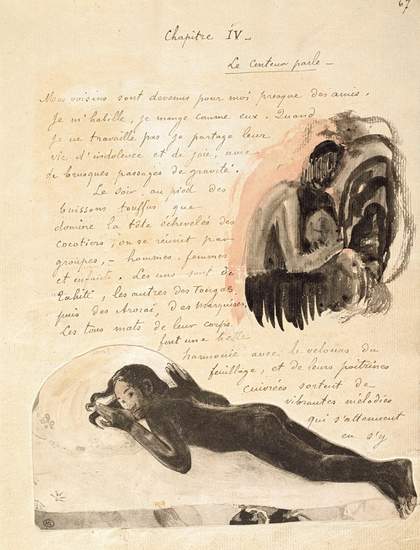 67
Chapitre IV_
Le Conteur parle_
Mes voisins sont devenus pour moi presque des amis.
Je m'habille, je mange comme eux. Quand
Je ne travaille pas je partage leur
vie d'indolence et de joie, avec
de brusques passages de gravité.
Le soir, au pied des
buissons touffus que
domine la tête échevelée des
Cocotiers, on se réunit par
groupes, - hommes, femmes
et enfants. Les uns sont de
Tahiti, les autres des Tongas,
puis des Arorai, des Marquises.
Les tons mats de leur corps
font une belle
harmonie avec le velours du
feuillage, et de leurs poitrines
cuivrées sortent de
vibrantes mélodies
qui s'atténuent
en s'y